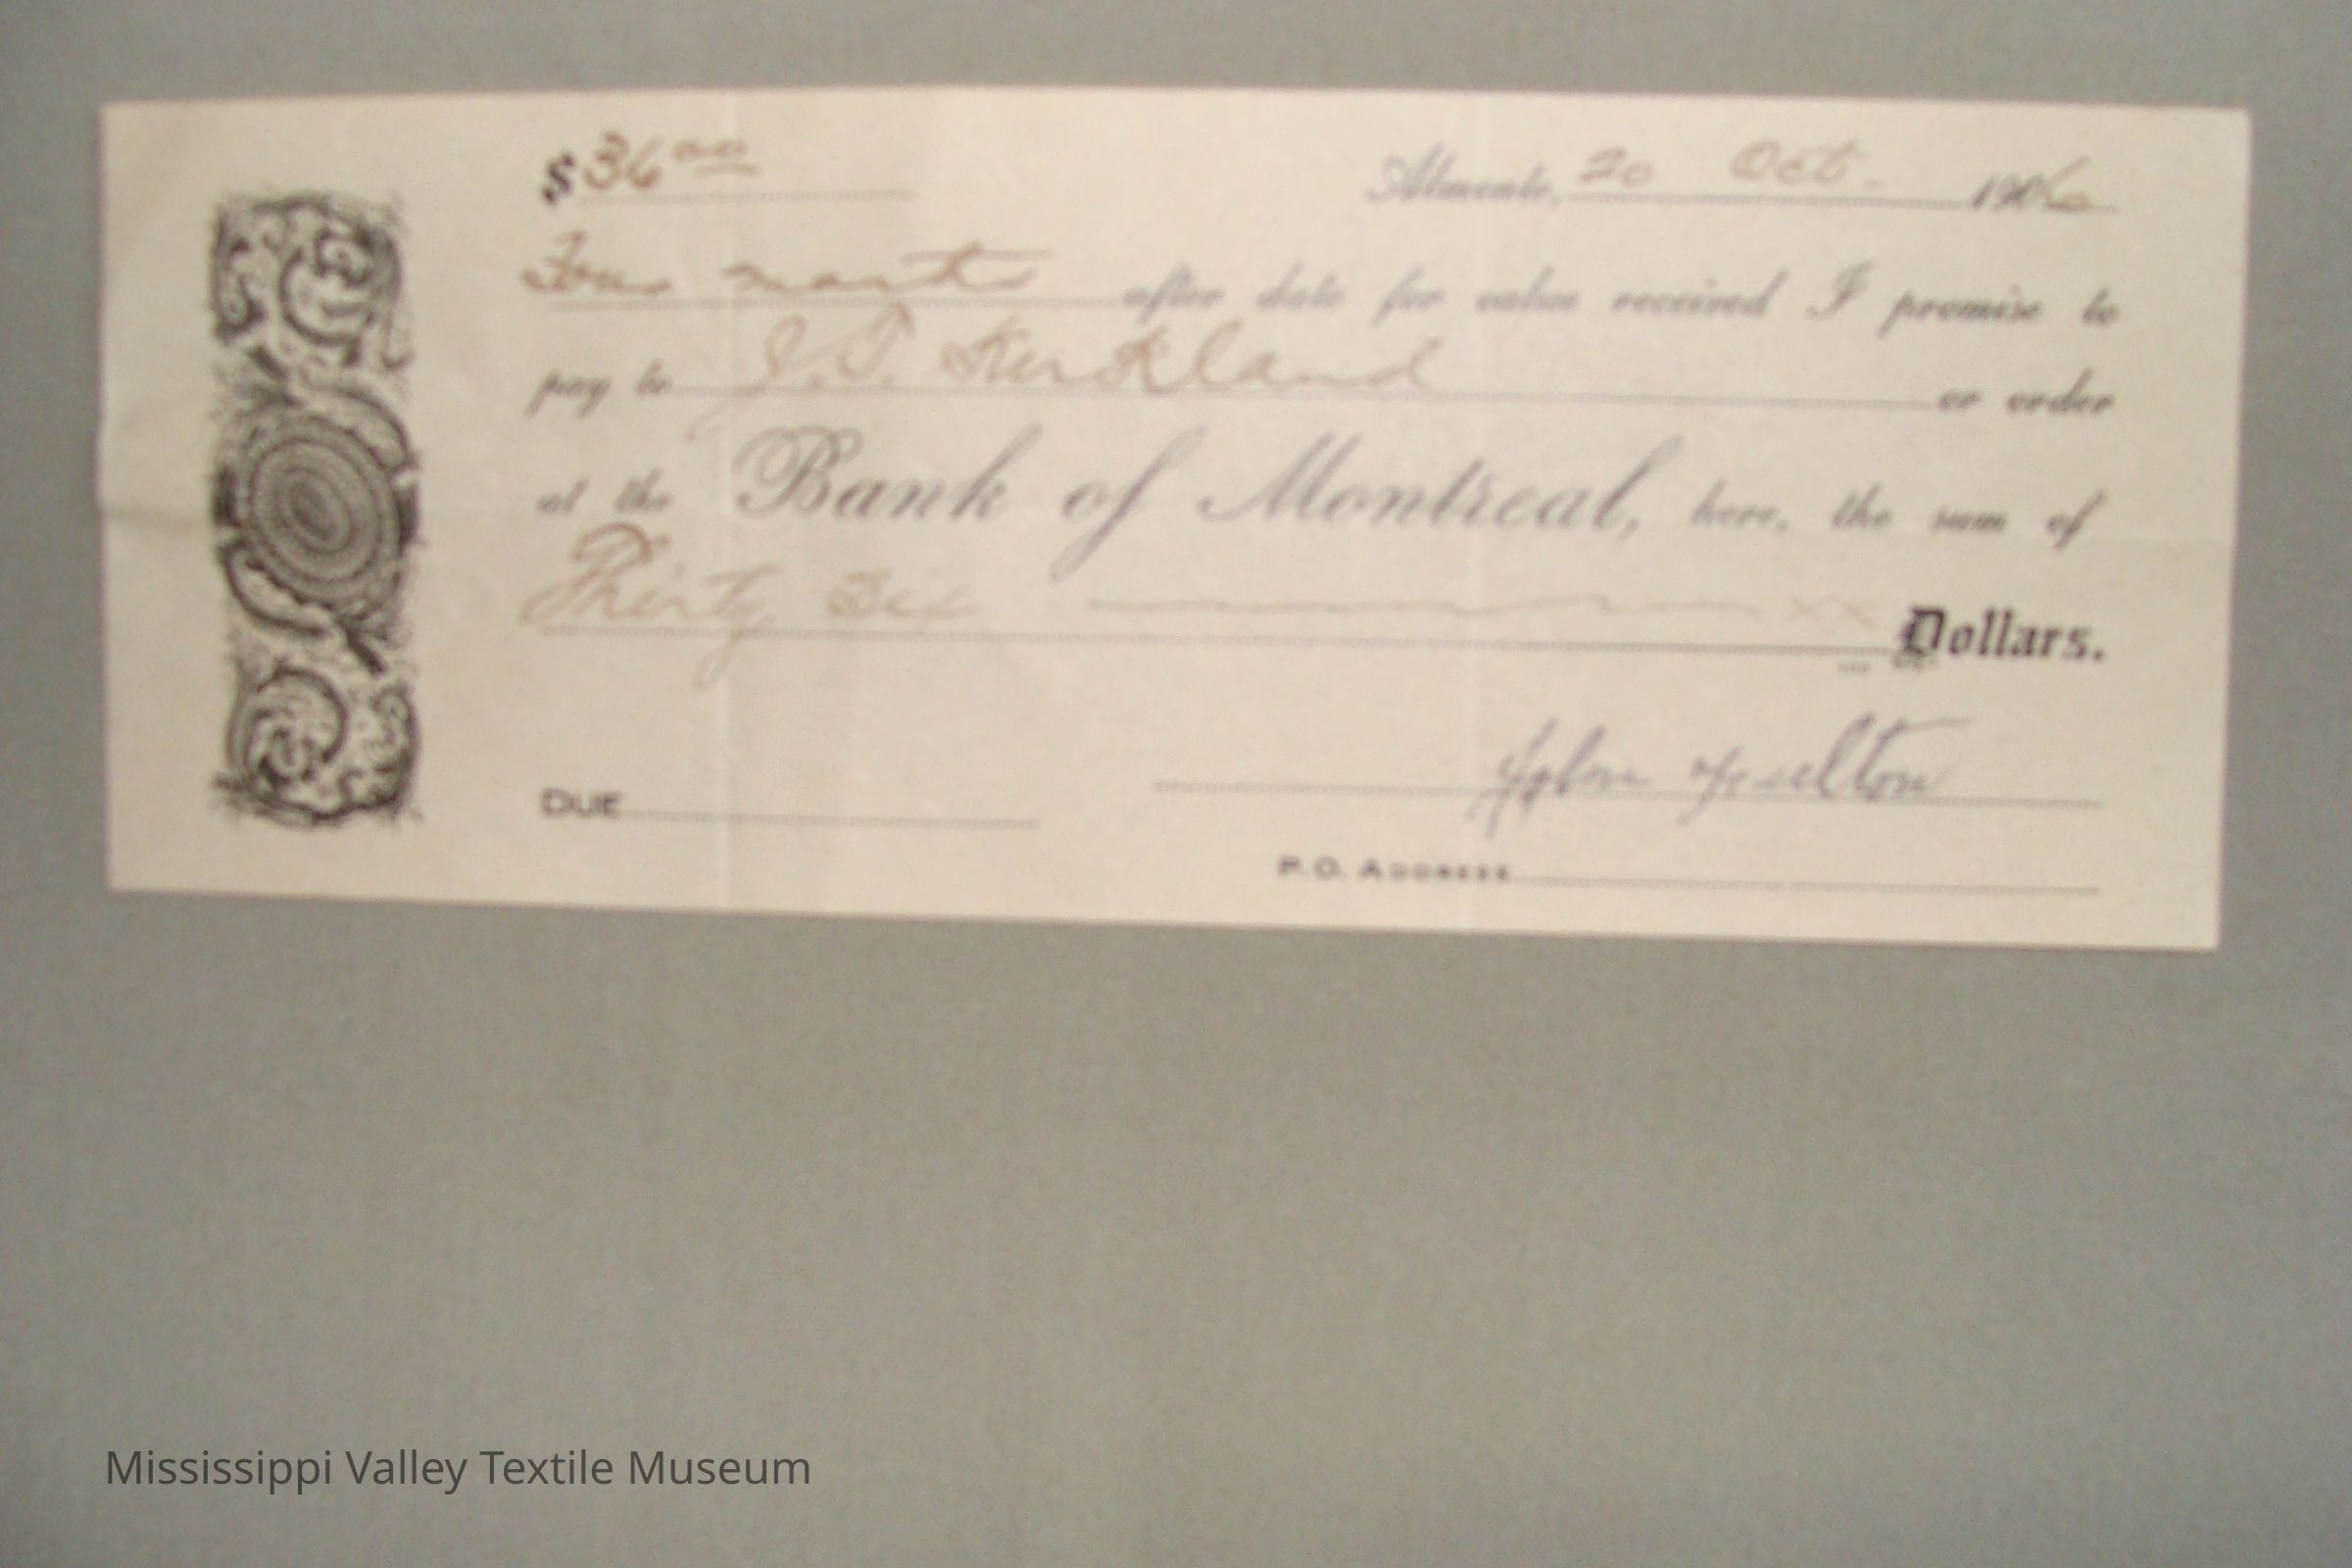 $ 36 00
Almonte, 20 Oct. 1906
Four months after date for value received I promise to
pay to J.T. Kirkland or order
at the Bank of Montreal, here, the sum of
Thirty Six Dollars.
John
DUE
P.O. ADDRESS
Mississippi Valley Textile Museum